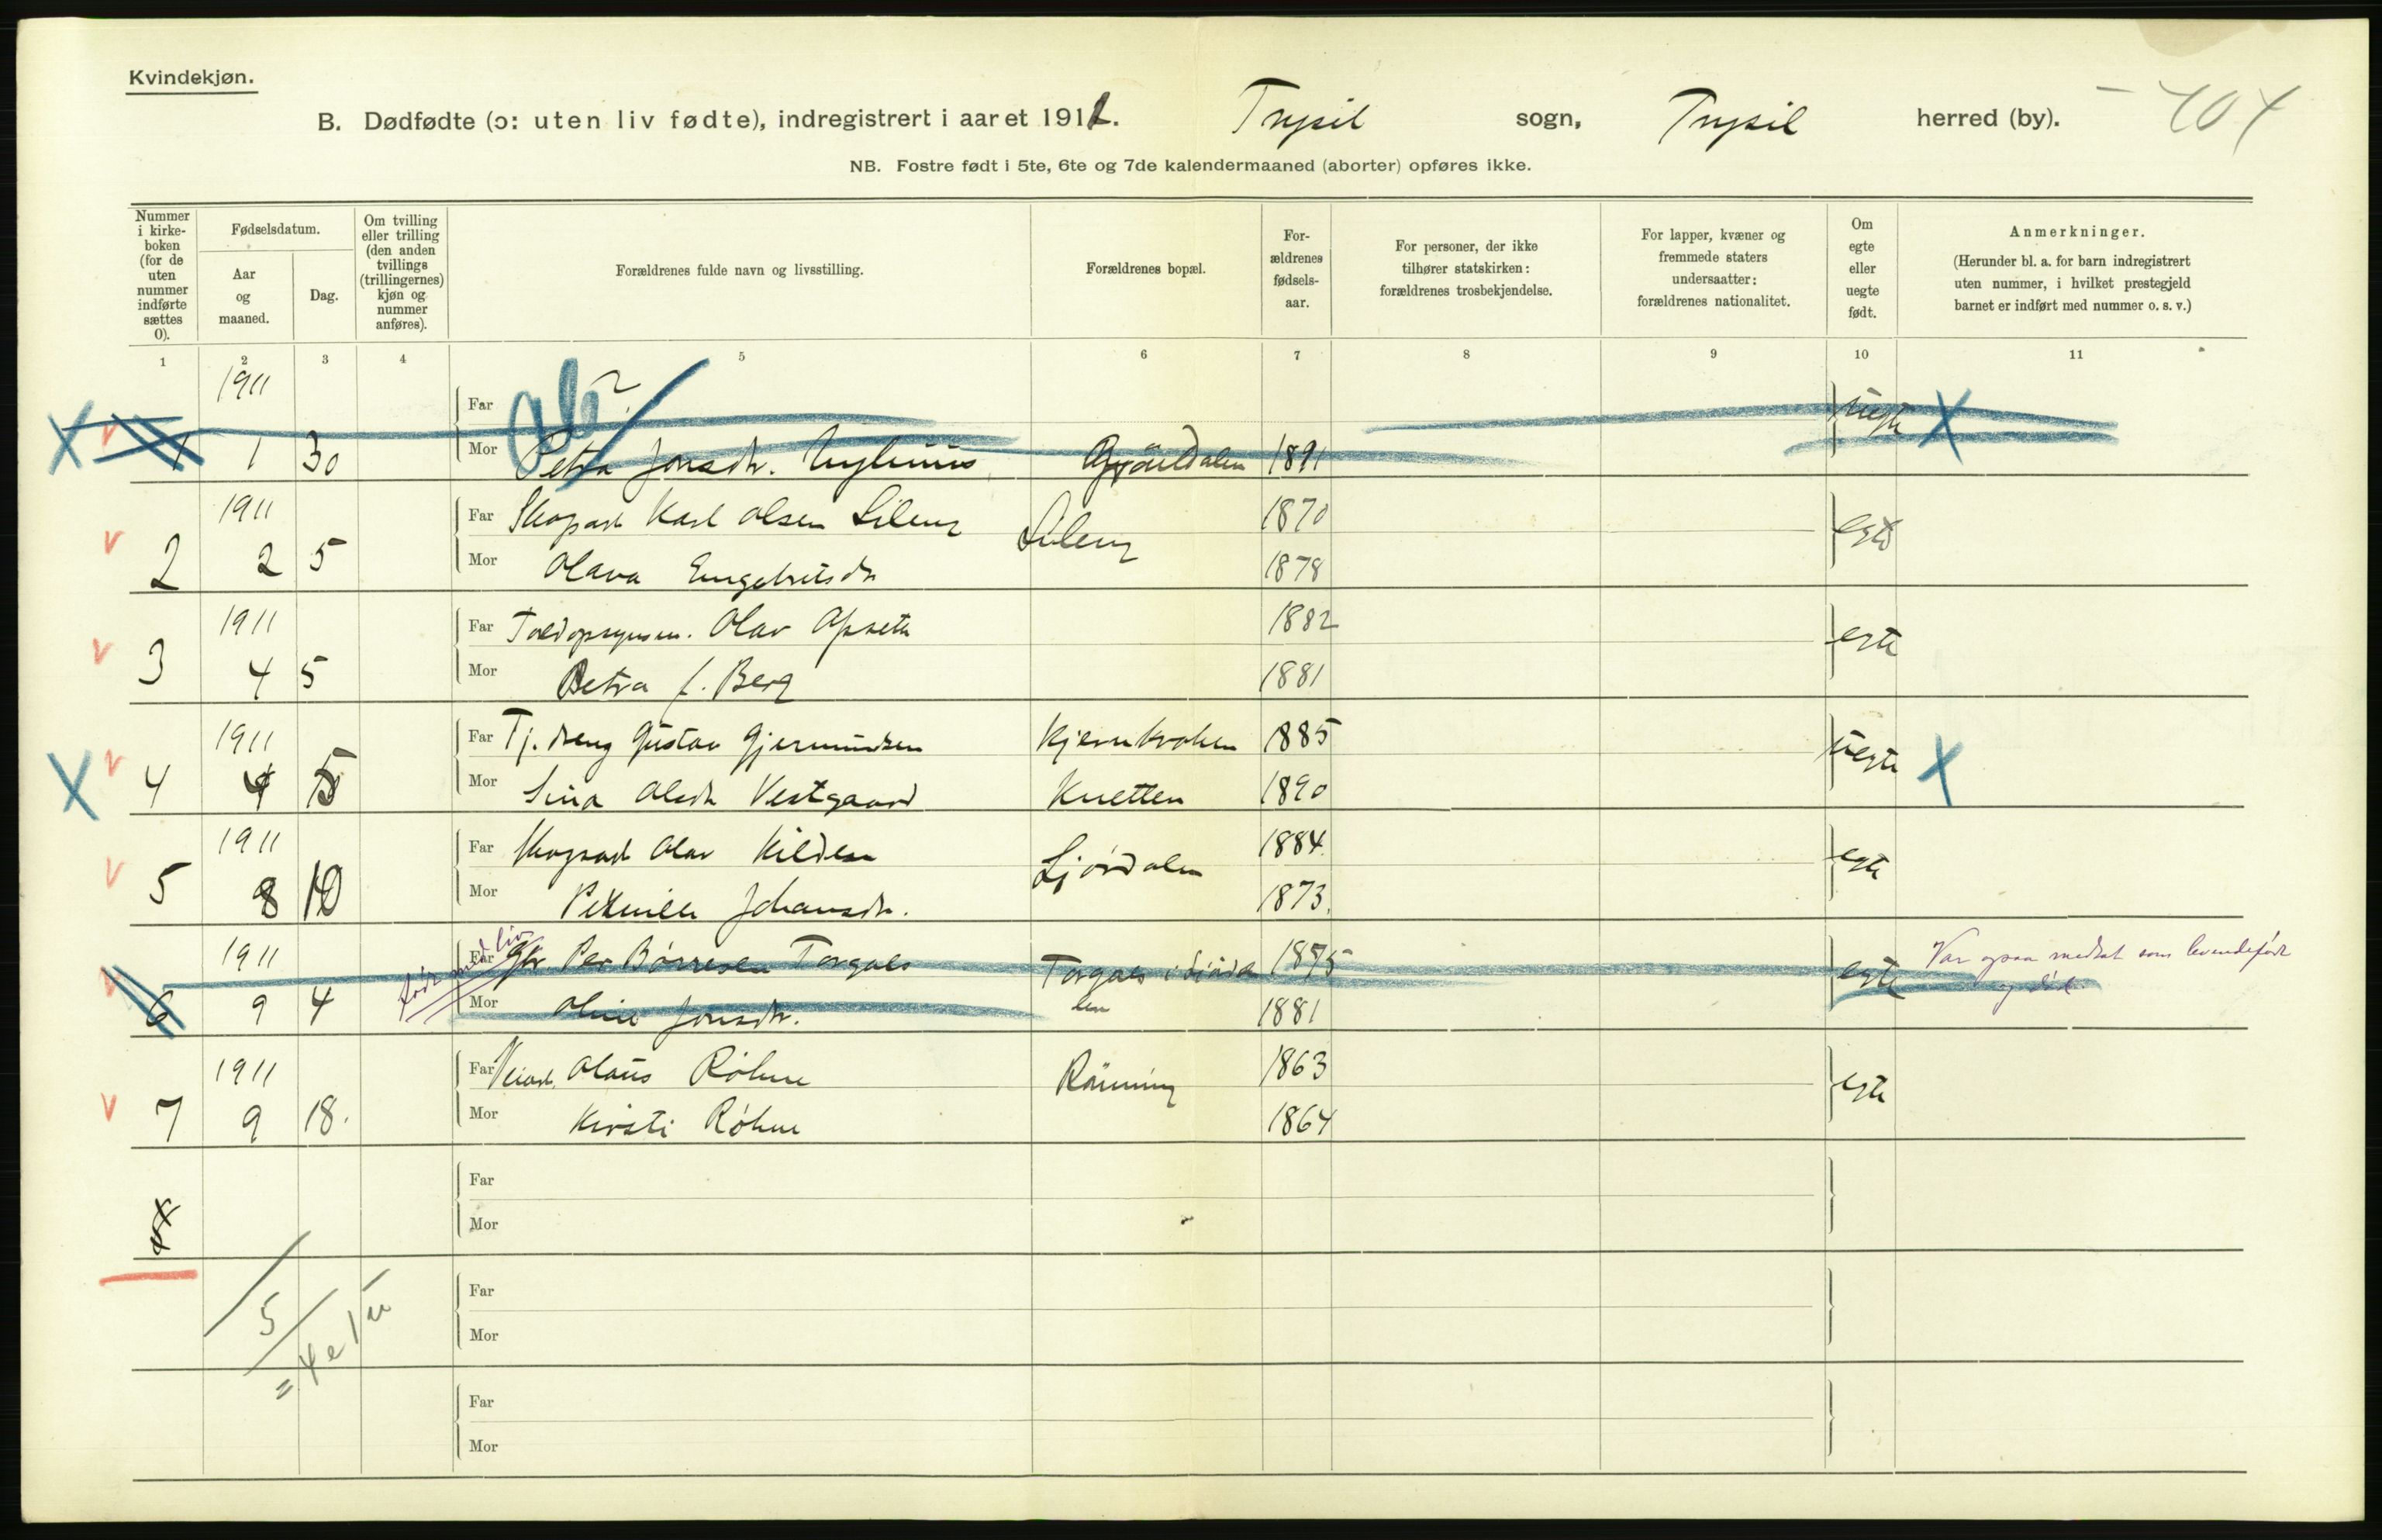 Kvindekjøn.
B. Dødfødte (ɔ: uten liv fødte), indregistrert i aaret 1911. Trysil sogn, Trysil herred (by). 
NB. Fostre født i 5te, 6te og 7de kalendermaaned (aborter) opføres ikke.
Nummer i kirke-boken (for de uten nummer indførte sættes 0).
Fødselsdatum.
Aar og maaned.
Dag.
Om tvilling eller trilling (den anden tvillings (trillingernes) kjøn og nummer anføres).
Forældrenes fulde navn og livsstilling.
Forældrenes bopæl.
For-ældrenes fødsels-aar.
For personer, der ikke tilhører statskirken: forældrenes trosbekjendelse.
For lapper, kvæner og fremmede staters undersaatter: forældrenes nationalitet.
Om egte eller uegte født.
Anmerkninger.
(Herunder bl. a. for barn indregistrert uten nummer, i hvilket prestegjeld barnet er indført med nummer o. s. v.)
1 2 3 4 5 6 7 8 9 10 11
1911 Far ? uegte X
X 1 1 30 Mor Petra Jonsdr. 1891
1911 Far Karl Olsen 1870 egte
2 2 5 Mor Olava 1878
1911 Far Olav 1882 egte
3 4 5 Mor Petra f. Berg 1881
1911 Far Tj. dreng Gustav Gjermundsen 1885 uegte X
X 4 4 5 Mor Olsdr Vestgaard Knetten 1890
1911 Far Olav Kilden Ljørdalen 1884 egte
5 8 10 Mor Johansdr. 1873
født med liv
1911 Far Gbr Per Børresen Torgals Torgals i Ljørda 1875 egte Var ogsaa medtat som levendefødt
6 9 4 Mor Oline Jonsdr. len 1881 og død.
1911 Far Olaus Røhne Rønning 1863 egte
7 9 18. Mor Kirsti Røhne 1864
8 Far
Mor
Far
5 Mor
= 4 e 1 u
Far
Mor